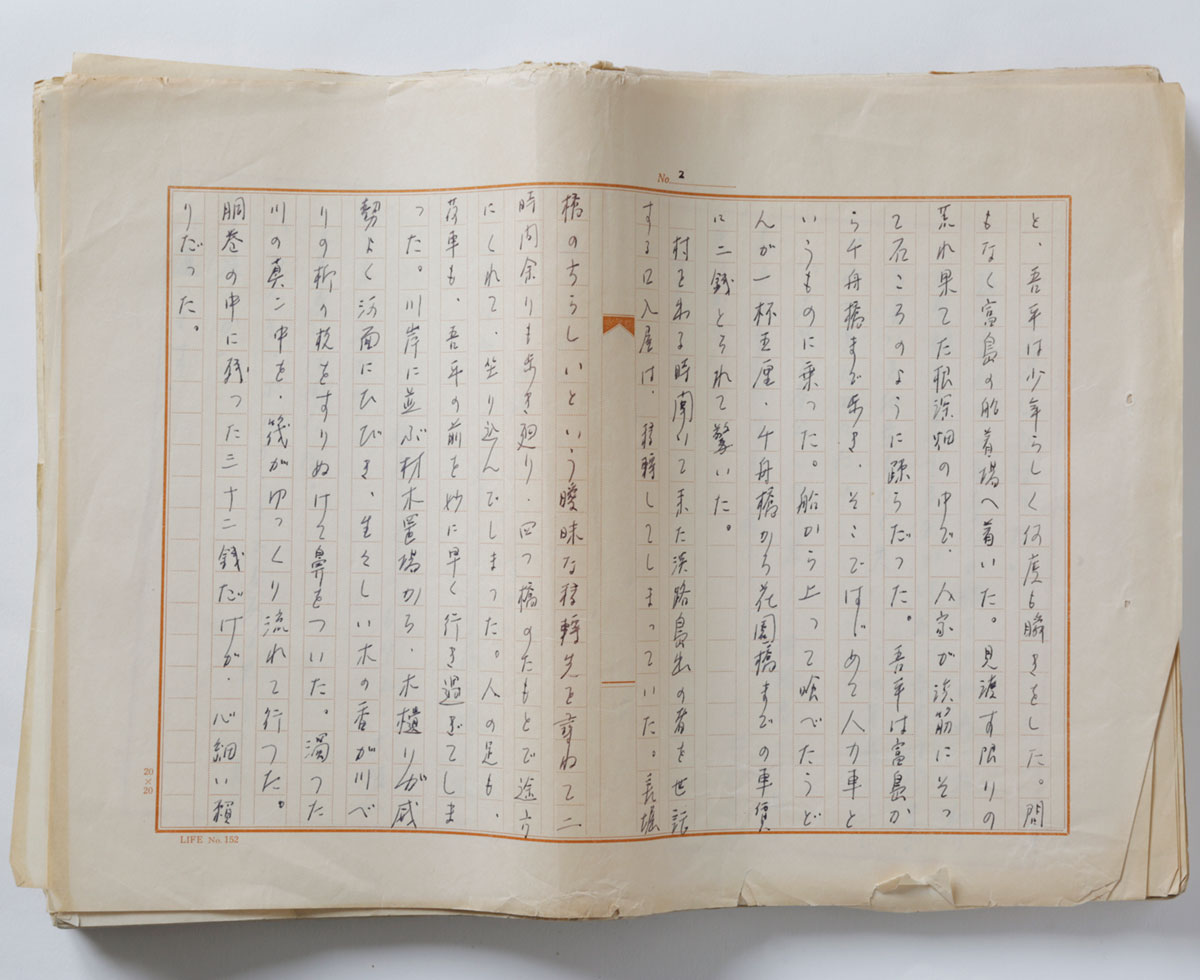 No. 2
と、吾平は少年らしく何度も瞬きをした。間
もなく富島の船着場へ着いた。見渡す限りの
荒れ果てた根深畑の中で、人家が淡筋にそっ
て石ころのように疎らだった。吾平は富島か
ら千舟橋まで歩き、そこではじめて人力車と
いうものに乗った。船から上って喰べたうど
んが一杯五厘、千舟橋から花園橋までの車賃
に二銭とられて驚いた。
村を出る時聞いて来た淡路島出の者を世話
する口入屋は、移転してしまっていた。長堀
橋のちらしいという曖昧な移転先を尋ねて二
時間余りも歩き廻り、四つ橋のたもとで途方
にくれて、坐り込んでしまった。人の足も、
荷車も、吾平の前を妙に早く行き過ぎてしま
った。川岸に並ぶ材木置場から、木樵りが威
勢よく河面にひびき、生々しい木の香が川べ
りの柳の枝をすりぬけて鼻をついた。濁った
川の真ン中を、筏がゆっくり流れて行った。
胴巻の中に残った三十二銭だけが、心細い頼
りだった。
20×20
LIFE No. 152